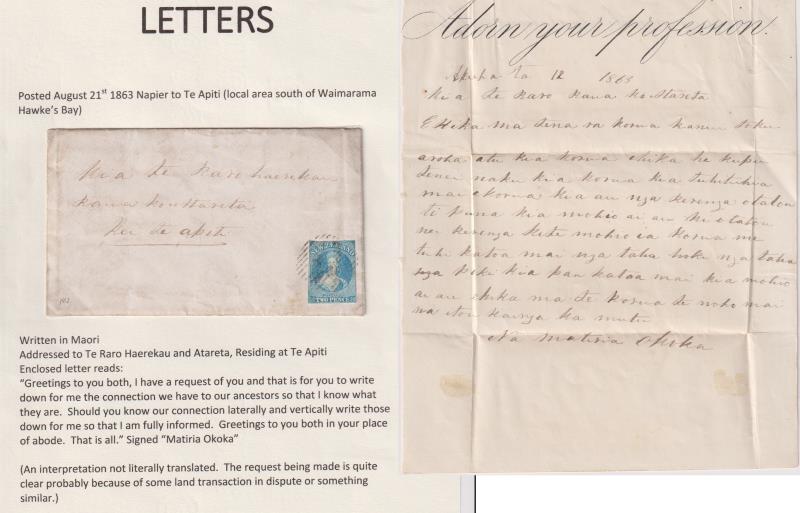 LETTERS
Posted August 21st 1863 Napier to Te Apiti (local area south of Waimarama
Hawke's Bay)
Kia te Raro haerekau
Raua ko Attareta
Kei te apiti
NEW ZEALAND
TWO PENCE
Written in Maori
Addressed to Te Raro Haerekau and Atareta, Residing at Te Apiti
Enclosed letter reads:
"Greetings to you both, I have a request of you and that is for you to write
down for me the connection we have to our ancestors so that I know what
they are. Should you know our connection laterally and vertically write those
down for me so that I am fully informed. Greetings to you both in your place
of abode. That is all." Signed "Matiria Okoka"
(An interpretation not literally translated. The request being made is quite
clear probably because of some land transaction in dispute or something
similar.)
Adorn your profession.
12 1863
Kia te Raro Raua ko Attareta
E Hika ma tena ra korua kanui toku
aroha atu kia korua ehika he kupu
tenei naku kia korua kia tuhituhia
mai ekorua kia au nga kerenga otatou
ti puna kia mohio ai au ki otatou
kerenga kite mohio ia korua me
tuhi katoa mai nga taha hoki nga taha
nga piki kia pau katoa mai kia mohio
ai au ehika ma te korua te noho mai
na i tou kainga ka mutu
Na matiria Okoka